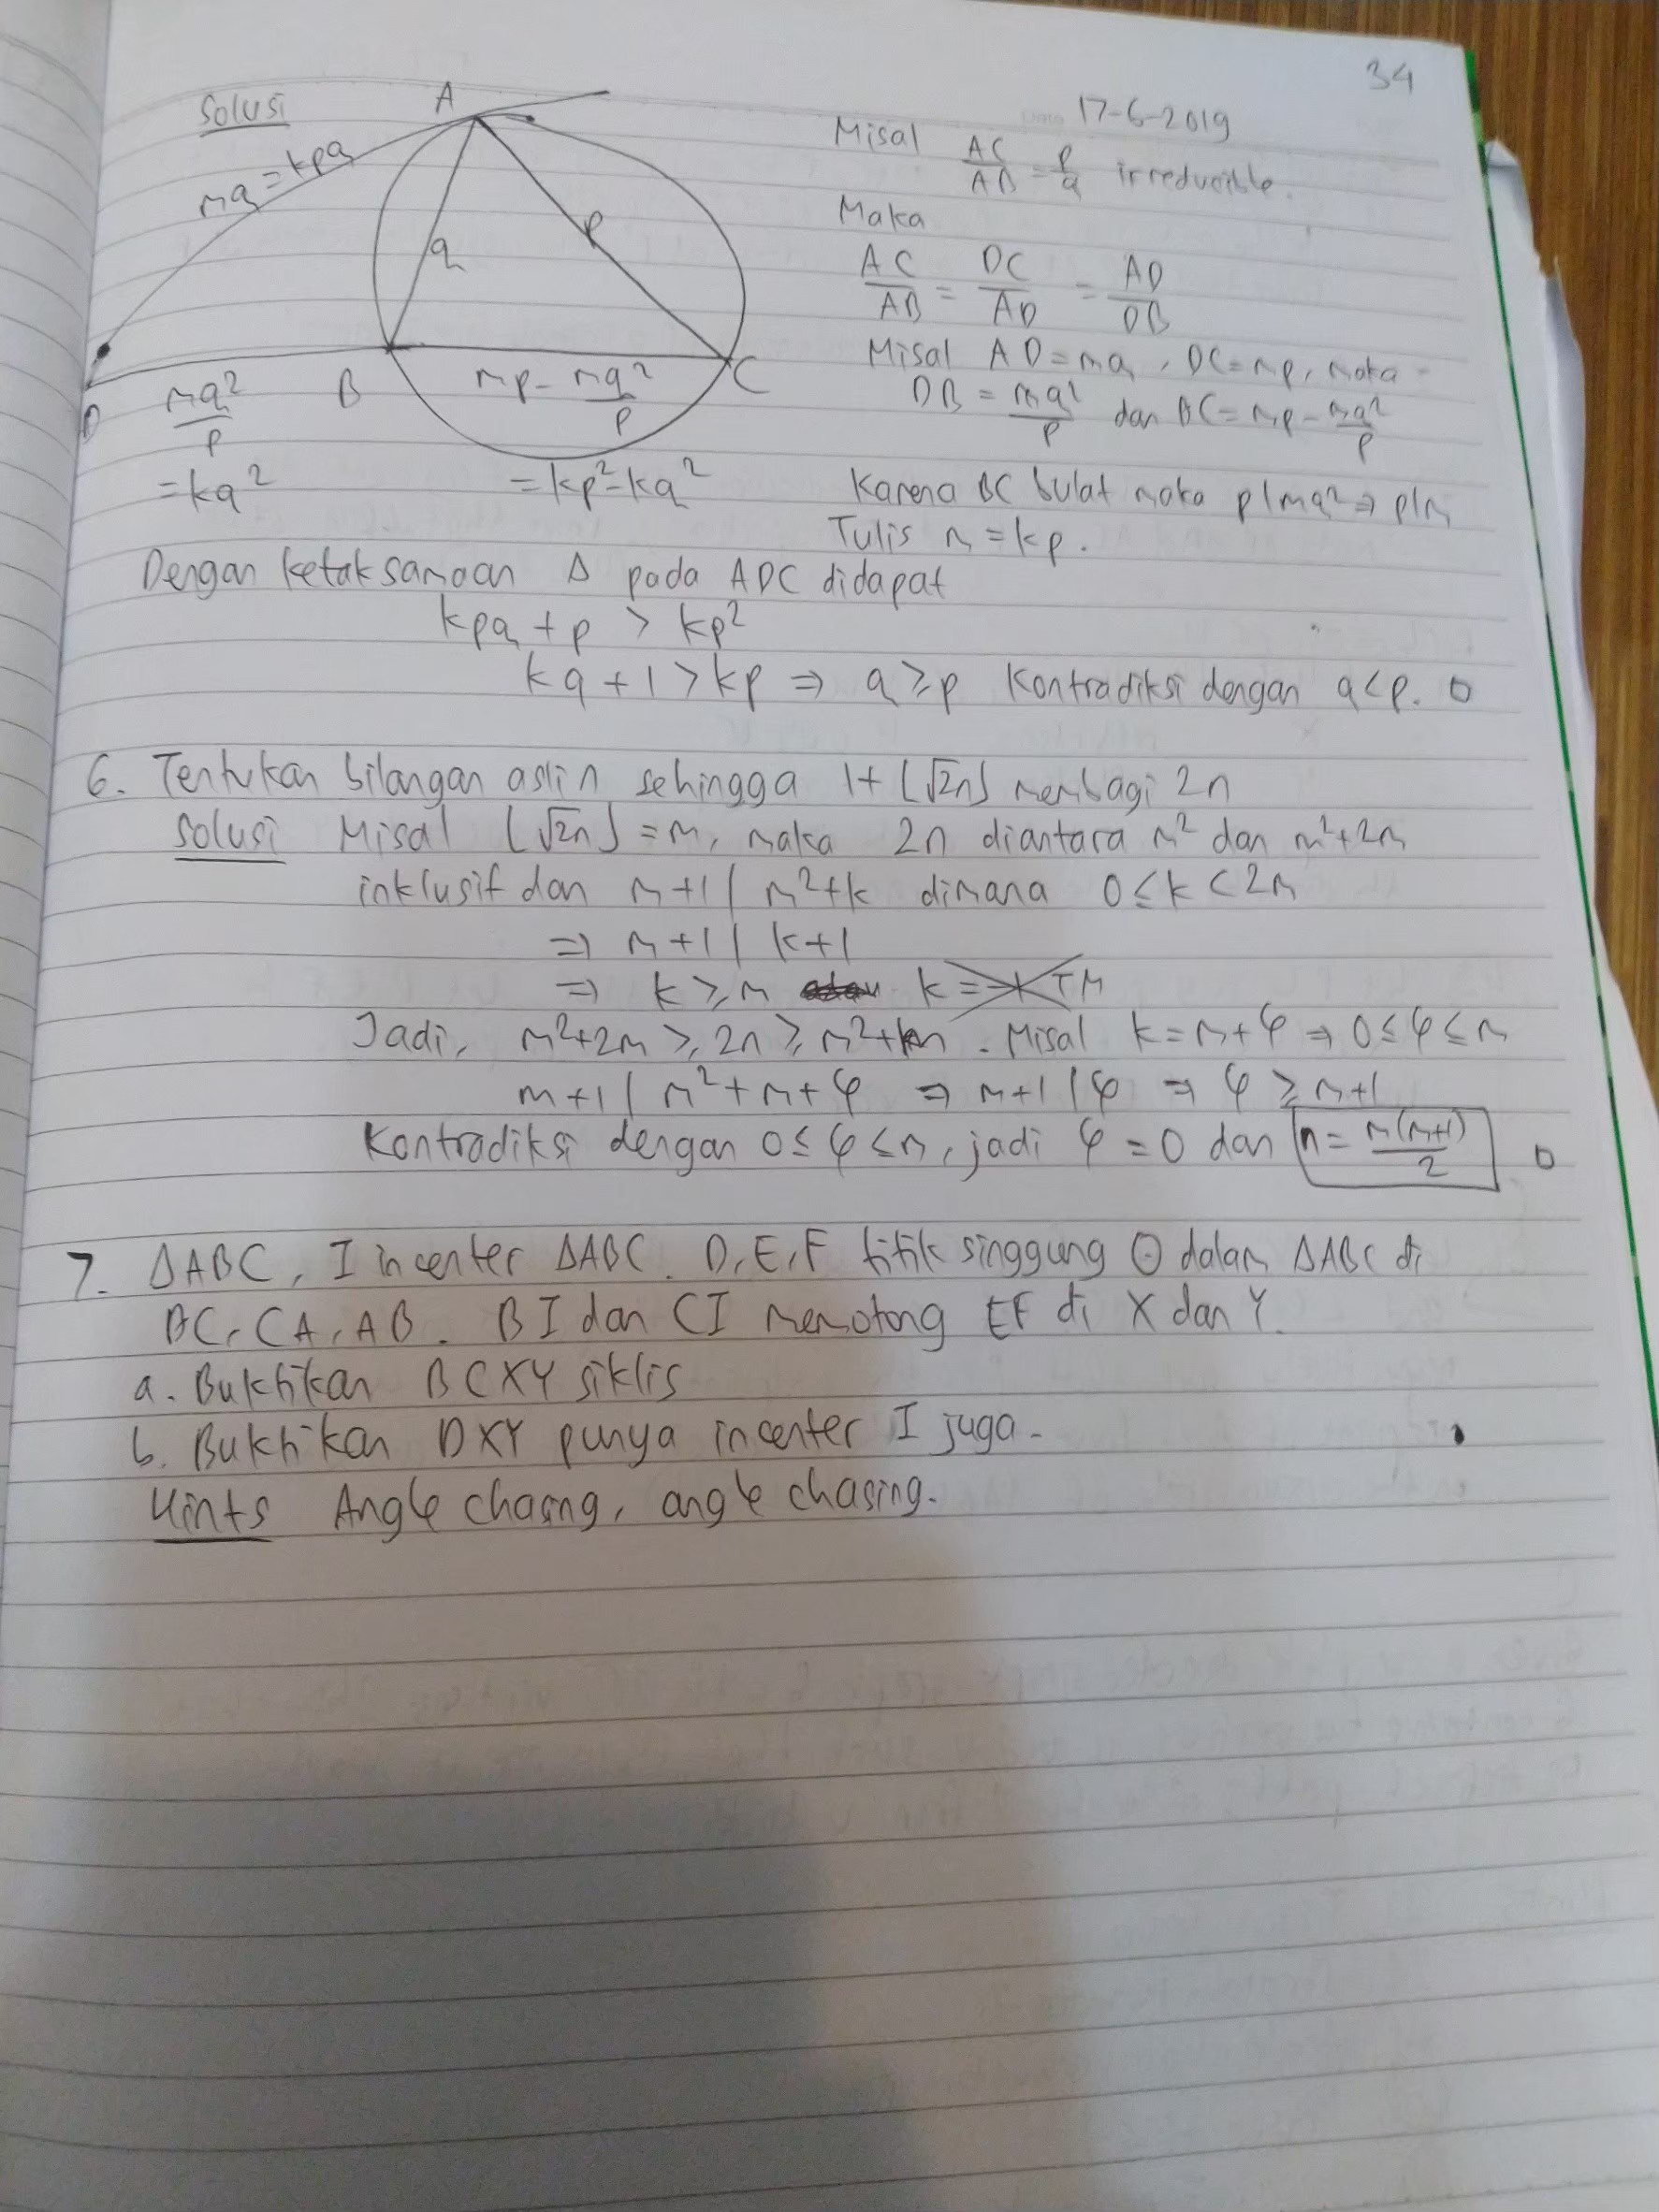 34
17-6-2019
Solusi
A
mq = kpq
q
p
D
B
C
mq²/p
mp - mq²/p
= kq²
= kp² - kq²
Misal AC/AB = p/q irreducible.
Maka
AC/AB = DC/AD = AD/DB
Misal AD = mq, DC = mp, maka
DB = mq²/p dan BC = mp - mq²/p
Karena BC bulat maka p | mq² ⇒ p|m
Tulis m = kp.
Dengan ketaksamaan Δ pada ADC didapat
kpq + p > kp²
kq + 1 > kp ⇒ q ≥ p kontradiksi dengan q < p. □
6. Tentukan bilangan asli n sehingga 1 + ⌊√2n⌋ membagi 2n
Solusi Misal ⌊√2n⌋ = m, maka 2n diantara m² dan m²+2m
inklusif dan m+1 | m²+k dimana 0 ≤ k < 2m
⇒ m+1 | k+1
⇒ k ≥ m k = -1 TM
Jadi, m²+2m ≥ 2n ≥ m²+m. Misal k = m+φ ⇒ 0 ≤ φ ≤ m
m+1 | m²+m+φ ⇒ m+1 | φ ⇒ φ ≥ m+1
Kontradiksi dengan 0 ≤ φ ≤ m, jadi φ = 0 dan n = m(m+1)/2 □
7. ΔABC, I incenter ΔABC. D, E, F titik singgung ⊙ dalam ΔABC di
BC, CA, AB. BI dan CI memotong EF di X dan Y.
a. Buktikan BCXY siklis
b. Buktikan DXY punya incenter I juga.
Hints Angle chasng, angle chasing.